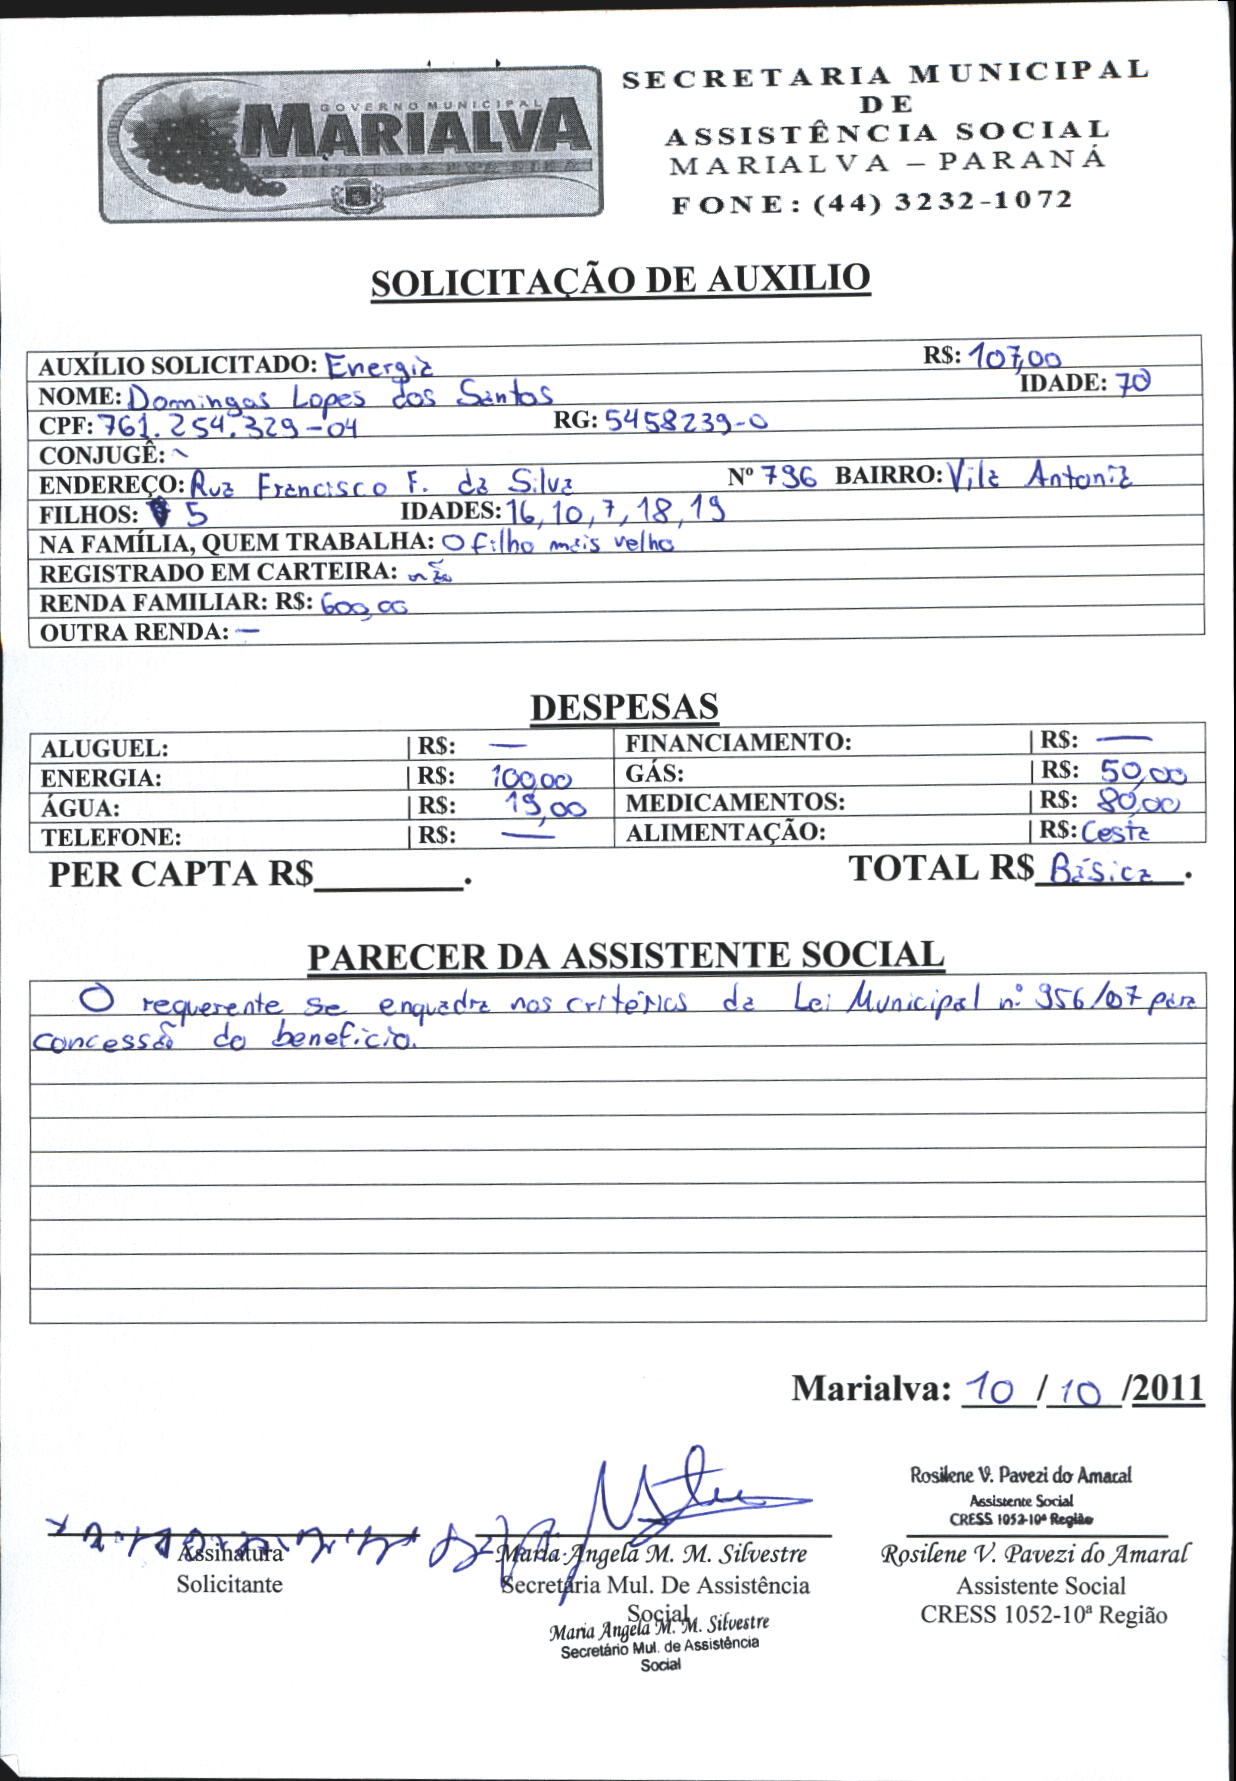 GOVERNO MUNICIPAL
MARIALVA
CAPITAL DA UVA FINA
SECRETARIA MUNICIPAL
DE
ASSISTÊNCIA SOCIAL
MARIALVA – PARANÁ
FONE: (44) 3232-1072
SOLICITAÇÃO DE AUXILIO
AUXÍLIO SOLICITADO: Energia R$: 107,00
NOME: Domingas Lopes dos Santos IDADE: 70
CPF: 761.254.329-04 RG: 5458239-0
CONJUGÊ: -
ENDEREÇO: Rua Francisco F. da Silva Nº 796 BAIRRO: Vila Antonia
FILHOS: 5 IDADES: 16, 10, 7, 18, 19
NA FAMÍLIA, QUEM TRABALHA: O filho mais velho
REGISTRADO EM CARTEIRA: não
RENDA FAMILIAR: R$: 600,00
OUTRA RENDA: —
DESPESAS
ALUGUEL: | R$: — FINANCIAMENTO: | R$: —
ENERGIA: | R$: 100,00 GÁS: | R$: 50,00
ÁGUA: | R$: 19,00 MEDICAMENTOS: | R$: 80,00
TELEFONE: | R$: — ALIMENTAÇÃO: | R$: Cesta
PER CAPTA R$________. TOTAL R$ Básica.
PARECER DA ASSISTENTE SOCIAL
O requerente se enquadra nos critérios da Lei Municipal nº 956/07 para
concessão do beneficio.
Marialva: 10 / 10 /2011
Rosilene V. Pavezi do Amaral
Assistente Social
CRESS 1052-10ª Região
Assinatura
Solicitante
Maria Angela M. M. Silvestre
Secretária Mul. De Assistência
Social
Maria Angela M. M. Silvestre
Secretário Mul. de Assistência
Social
Rosilene V. Pavezi do Amaral
Assistente Social
CRESS 1052-10ª Região